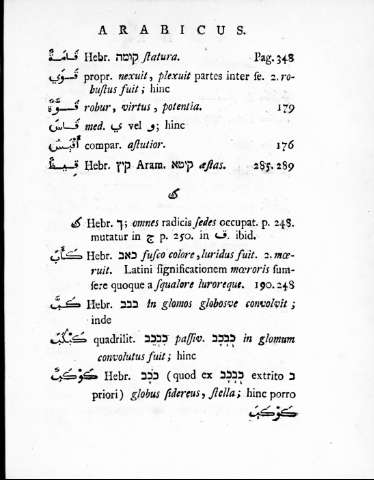 ARABICUS.
قَامَةٌ Hebr. קומה statura. Pag. 348
قَوِيَ propr. nexuit, plexuit partes inter se. 2. ro-
bustus fuit; hinc
قُوَّةٌ robur, virtus, potentia. 179
قَاسَ med. ي vel و; hinc
أَقْيَسُ compar. astutior. 176
قَيْظٌ Hebr. קיץ Aram. קיטא æstas. 285. 289
ك
ك Hebr. ך; omnes radicis sedes occupat. p. 248.
mutatur in ج p. 250. in ف. ibid.
كَأَبَ Hebr. כאב fusco colore, luridus fuit. 2. mœ-
ruit. Latini significationem mœroris sum-
sere quoque a squalore luroreque. 190. 248
كَبَّ Hebr. כבב in glomos globosve convolvit;
inde
كَبْكَبَ quadrilit. כְּבְכַּב passiv. כֻּבְכַּב in glomum
convolutus fuit; hinc
كَوْكَبٌ Hebr. כֹּכָב (quod ex כבכב extrito ב
priori) globus sidereus, stella; hinc porro
كَوْكَبَ